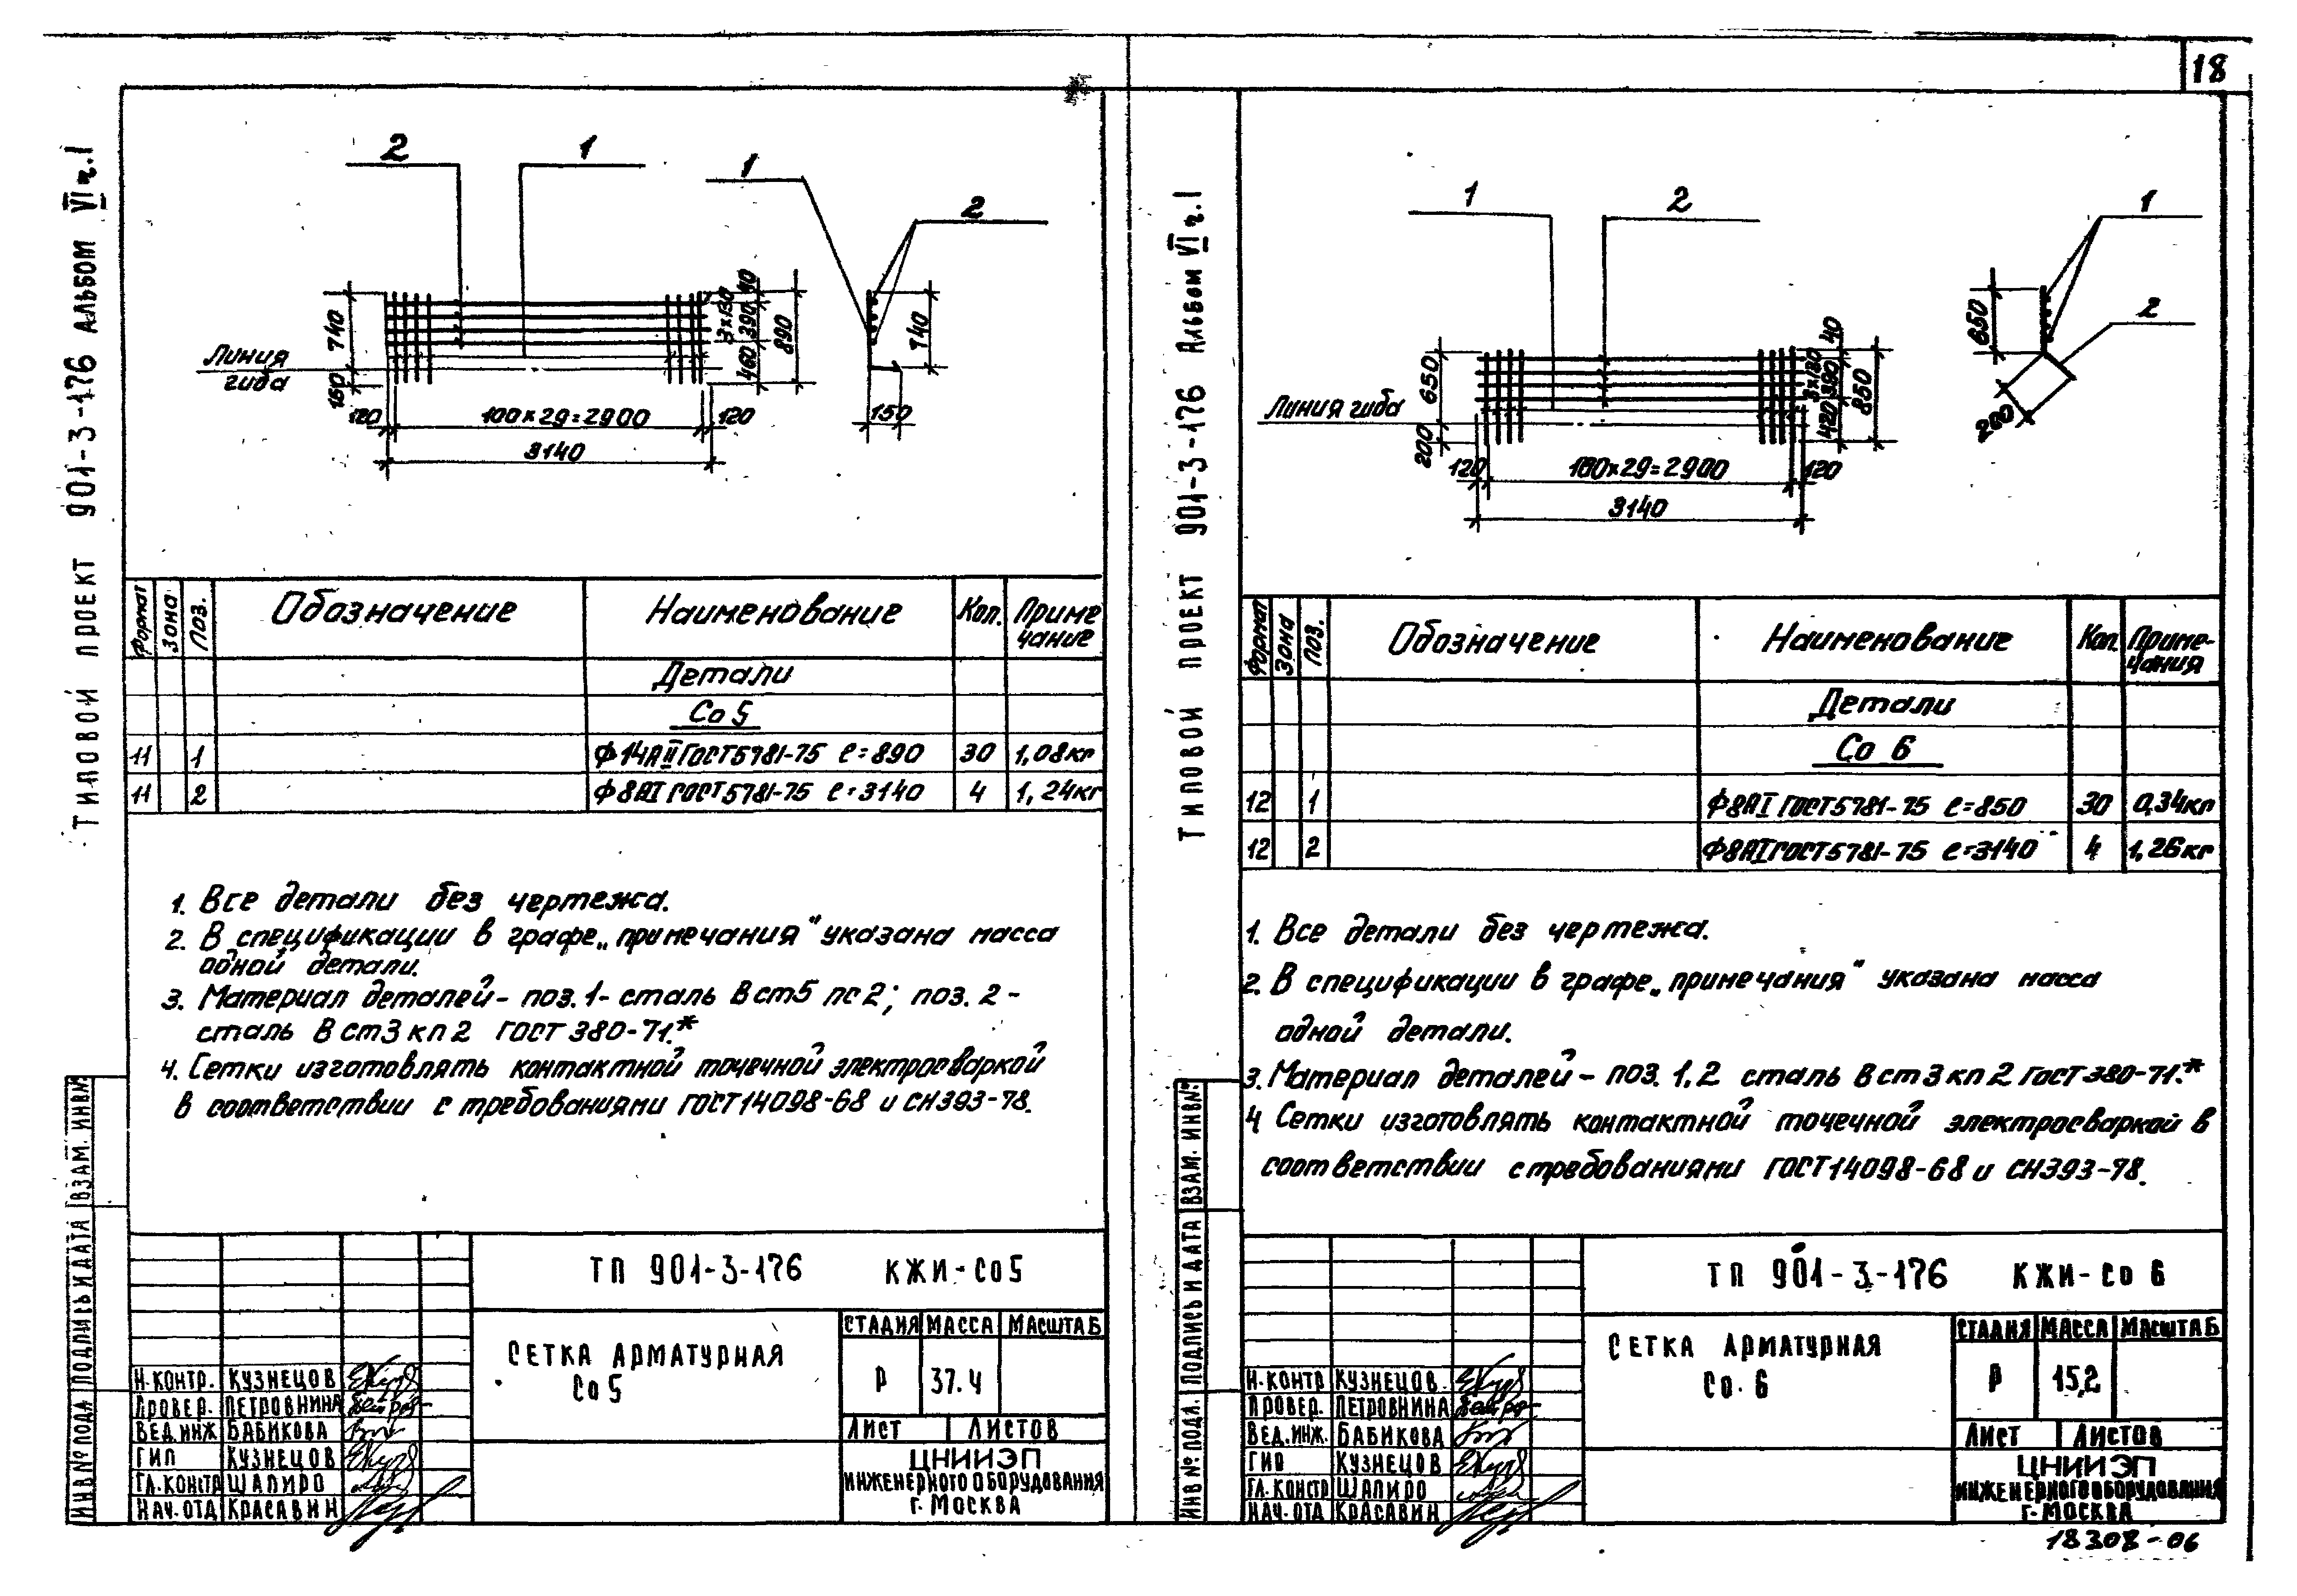 18
ТИПОВОЙ ПРОЕКТ 901-3-176 АЛЬБОМ VI ч.1
2
1
1
2
740
150
Линия
гиба
120
100×29=2900
120
3140
3×130
40
390
460
890
740
150
Формат
Зона
Поз.
Обозначение
Наименование
Кол.
Приме
чание
Детали
Со 5
11 1 Ф14АII ГОСТ5781-75 ℓ=890 30 1,08кг
11 2 Ф8АI ГОСТ5781-75 ℓ=3140 4 1,24кг
1. Все детали без чертежа.
2. В спецификации в графе „примечания" указана масса
одной детали.
3. Материал деталей- поз.1- сталь Вст5 пс2; поз. 2-
сталь Вст3кп2 ГОСТ 380-71.*
4. Сетки изготовлять контактной точечной электросваркой
в соответствии с требованиями ГОСТ14098-68 и СН393-78.
ТП 901-3-176 КЖИ-Со5
СЕТКА АРМАТУРНАЯ
Со5
СТАДИЯ МАССА МАСШТАБ
Р 37.4
Лист Листов
ЦНИИЭП
ИНЖЕНЕРНОГО ОБОРУДОВАНИЯ
г. МОСКВА
Н.КОНТР. КУЗНЕЦОВ
ПРОВЕР. ПЕТРОВНИНА
ВЕД.ИНЖ БАБИКОВА
ГИП КУЗНЕЦОВ
ГЛ.КОНСТР ШАПИРО
НАЧ.ОТД КРАСАВИН
ИНВ№ПОДЛ
ПОДПИСЬ И ДАТА
ВЗАМ. ИНВ№
ТИПОВОЙ ПРОЕКТ 901-3-176 Альбом VI ч.1
1
2
1
2
650
200
Линия гиба
120
100×29=2900
120
3140
3×130
40
390
420
850
650
200
Формат
Зона
Поз.
Обозначение
Наименование
Кол.
Приме-
чания
Детали
Со 6
12 1 Ф8АI ГОСТ5781-75 ℓ=850 30 0,34кг
12 2 Ф8АI ГОСТ5781-75 ℓ=3140 4 1,26кг
1. Все детали без чертежа.
2. В спецификации в графе „примечания" указана масса
одной детали.
3. Материал деталей- поз. 1,2 сталь Вст3кп2 ГОСТ380-71.*
4 Сетки изготовлять контактной точечной электросваркой в
соответствии с требованиями ГОСТ14098-68 и СН393-78.
ТП 901-3-176 КЖИ-Со 6
СЕТКА АРМАТУРНАЯ
Со.6
СТАДИЯ МАССА МАСШТАБ
Р 15,2
Лист Листов
ЦНИИЭП
ИНЖЕНЕРНОГО ОБОРУДОВАНИЯ
г. МОСКВА
Н.КОНТР КУЗНЕЦОВ
ПРОВЕР. ПЕТРОВНИНА
ВЕД.ИНЖ. БАБИКОВА
ГИП КУЗНЕЦОВ
ГЛ.КОНСТР ШАПИРО
НАЧ.ОТД КРАСАВИН
ИНВ№ПОДЛ.
ПОДПИСЬ И ДАТА
ВЗАМ. ИНВ№
18308-06